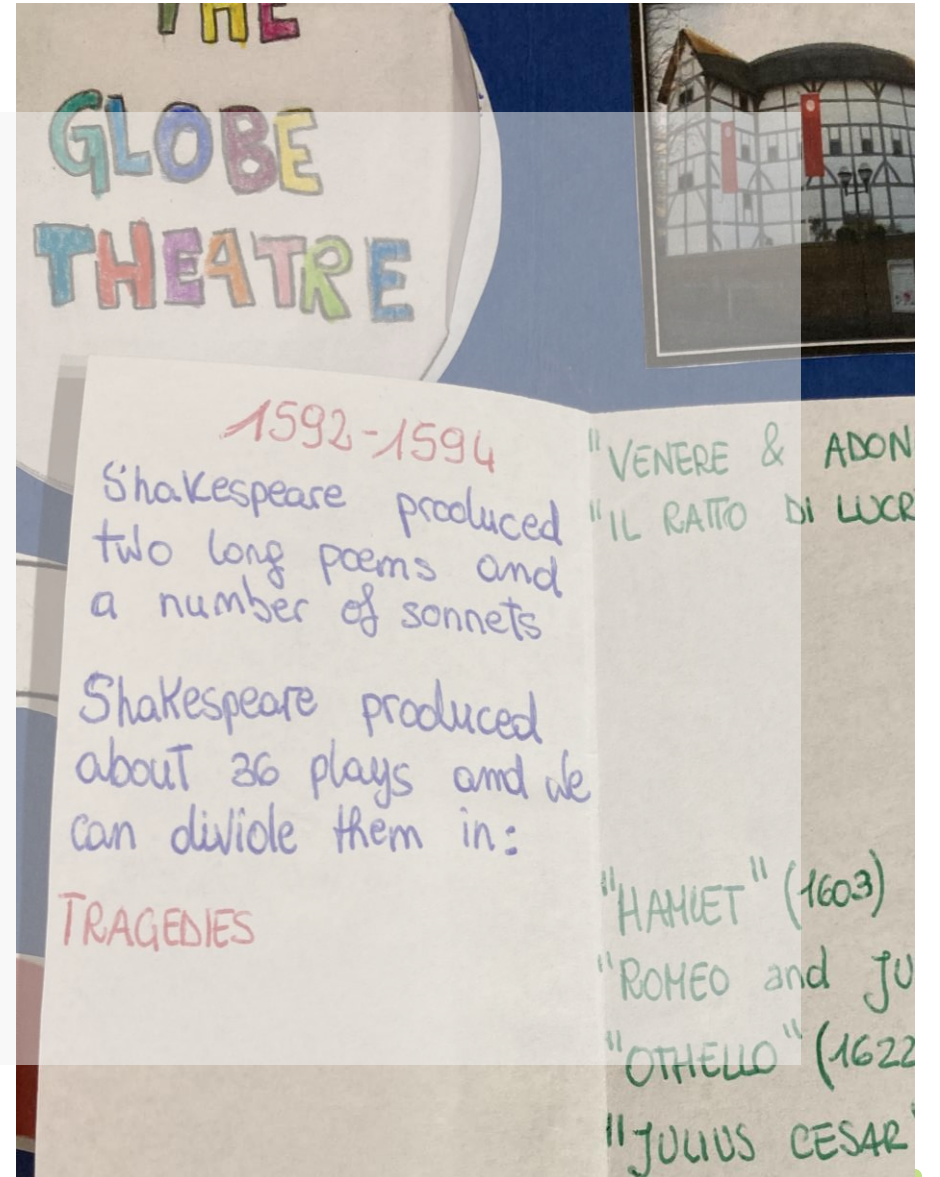 THE
GLOBE
THEATRE
1592-1594
Shakespeare produced
two long poems and
a number of sonnets
Shakespeare produced
about 36 plays and we
can divide them in:
TRAGEDIES
"VENERE & ADON
"IL RATTO DI LUCR
"HAMLET" (1603)
"ROMEO and JU
"OTHELLO" (1622
"JULIUS CESAR"